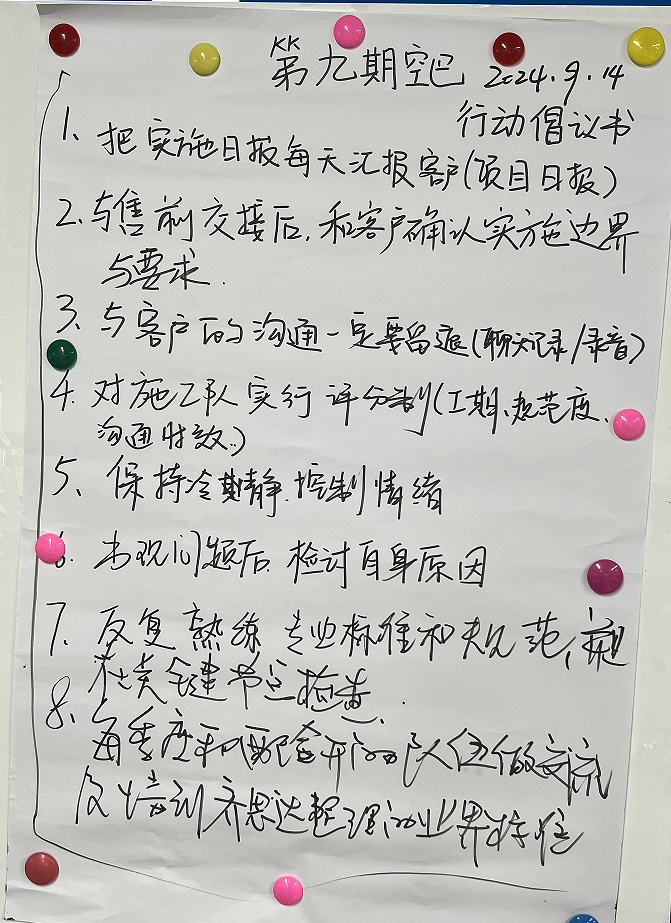 KK
第九期空巴 2024.9.14
行动倡议书
1、把实施日报每天汇报客户(项目日报)
2、与售前交接后,和客户确认实施边界
与要求.
3、与客户的沟通一定要留痕(聊天记录/录音)
4、对施工队实行评分制(工期、规范度、
沟通时效、)
5、保持冷静.控制情绪
6、出现问题后 检讨自身原因
7、反复熟练专业标准和规范,
关键节点检查.
8、每季度和配合 队伍做交流
及 到齐思达整理的业界标准